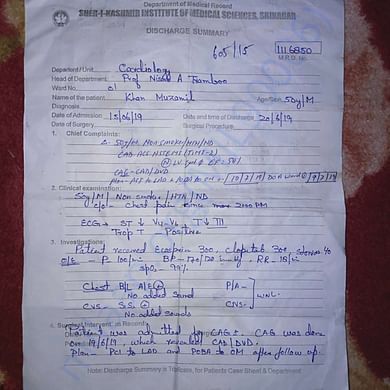 Department of Medical Record
SHER-I-KASHMIR INSTITUTE OF MEDICAL SCIENCES, SRINAGAR
DISCHARGE SUMMARY
605/15
1116850
M.R.D. No.
Department / Unit Cardiology
Head of Department: Prof Nisar A Tramboo
Ward No.
Name of the patient Khan Muzamil Age/Sex 50y/M
Diagnosis
Date of Admission 15/06/19 Date and time of Discharge 20/6/19
Date of Surgery Surgical Procedure
1. Chief Complaints:
50y/M NON SMOKER/HTN/ND
CAD-ACS NSTEMI
EF = 50%
CAG - CAD/DVD
Plan - PCI to LAD & POBA to OM
2. Clinical examination:
50y/M / Non smoker / HTN / ND
c/o - Chest pain since more 2:00 PM
ECG → ST ↓ V4-V6 T↓ III
Trop T - Positive
3. Investigations:
Patient received Ecosprin 300, Cloplet 300,
O/E - P 100/min BP - 120/70 RR - 18/min
SpO2 - 99%
Chest B/L A/E P/A -
No added sound WNL.
CVS - S1S2 CNS -
No added sounds
4. Surgical Intervent. as Record:
Patient was admitted for CAG. CAG was done
on 19/6/19, which revealed CAD/DVD
Plan - PCI to LAD and POBA to OM after follow up.
Note: Discharge Summary is Triplicate, for Patients Case Sheet & Department